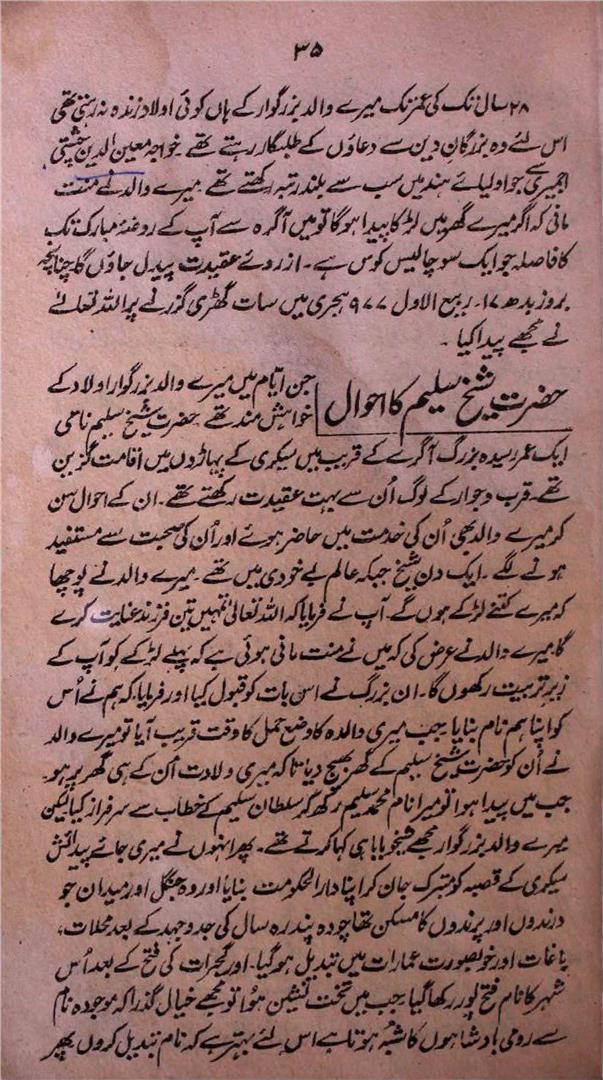 ۳۵
۲۸ سال تک کی عمر تک میرے والد بزرگوار کے ہاں کوئی اولاد زندہ نہ رہتی تھی
اس لئے وہ بزرگان دین سے دعاؤں کے طلبگار رہتے تھے خواجہ معین الدین چشتی
اجمیری سے جو اولیائے ہند میں سب سے بلند رتبہ رکھتے تھے میرے والد نے منت
مانی کہ اگر میرے گھر میں لڑکا پیدا ہو گا تو میں آگرہ سے آپ کے روضہ مبارک تک
کا فاصلہ جو ایک سو چالیس کوس ہے۔ از روئے عقیدت پیدل جاؤں گا۔ چنانچہ
بروز بدھ ۱۷۔ ربیع الاول ۹۷۷ ہجری میں سات گھڑی گزرنے پر اللہ تعالےٰ
نے مجھے پیدا کیا۔
حضرت شیخ سلیم کا احوال
جن ایام میں میرے والد بزرگوار اولاد کے
خواہش مند تھے۔ حضرت شیخ سلیم نامی
ایک عمر رسیدہ بزرگ آگرے کے قریب میں سیکری کے پہاڑوں میں اقامت گزین
تھے۔ قرب و جوار کے لوگ اُن سے بہت عقیدت رکھتے تھے۔ ان کے احوال سن
کر میرے والد بھی اُن کی خدمت میں حاضر ہوئے اور اُن کی صحبت سے مستفید
ہونے لگے۔ ایک دن شیخ جبکہ عالم بے خودی میں تھے۔ میرے والد نے پوچھا
کہ میرے کتنے لڑکے ہوں گے۔ آپ نے فرمایا کہ اللہ تعالیٰ تمہیں تین فرزند عنایت کرے
گا۔ میرے والد نے عرض کی کہ میں نے منت مانی ہوئی ہے کہ پہلے لڑکے کو آپ کے
زیر تربیت رکھوں گا۔ ان بزرگ نے اس بات کو قبول کیا اور فرمایا کہ ہم نے اُس
کو اپنا ہم نام بنایا۔ جب میری والدہ کا وضع حمل کا وقت قریب آیا تو میرے والد
نے اُن کو حضرت شیخ سلیم کے گھر بھیج دیا تاکہ میری ولادت اُن کے ہی گھر پر ہو۔
جب میں پیدا ہوا تو میرا نام محمد سلیم رکھ کر سلطان سلیم کے خطاب سے سرفراز کیا لیکن
میرے والد بزرگوار مجھے شیخو بابا ہی کہا کرتے تھے۔ پھر انہوں نے میری جائے پیدائش
سیکری کے قصبہ کو متبرک جان کر اپنا دارالحکومت بنایا اور وہ جنگل اور میدان جو
درندوں اور پرندوں کا مسکن تھا چودہ پندرہ سال کی جدوجہد کے بعد محلات،
باغات اور خوبصورت عمارات میں تبدیل ہو گیا۔ اور گجرات کی فتح کے بعد اُس
شہر کا نام فتح پور رکھا گیا۔ جب میں تخت نشین ہوا تو مجھے خیال گذرا کہ موجودہ نام
سے رومی بادشاہوں کا شبہ ہوتا ہے اس لئے بہتر ہے کہ نام تبدیل کروں پھر